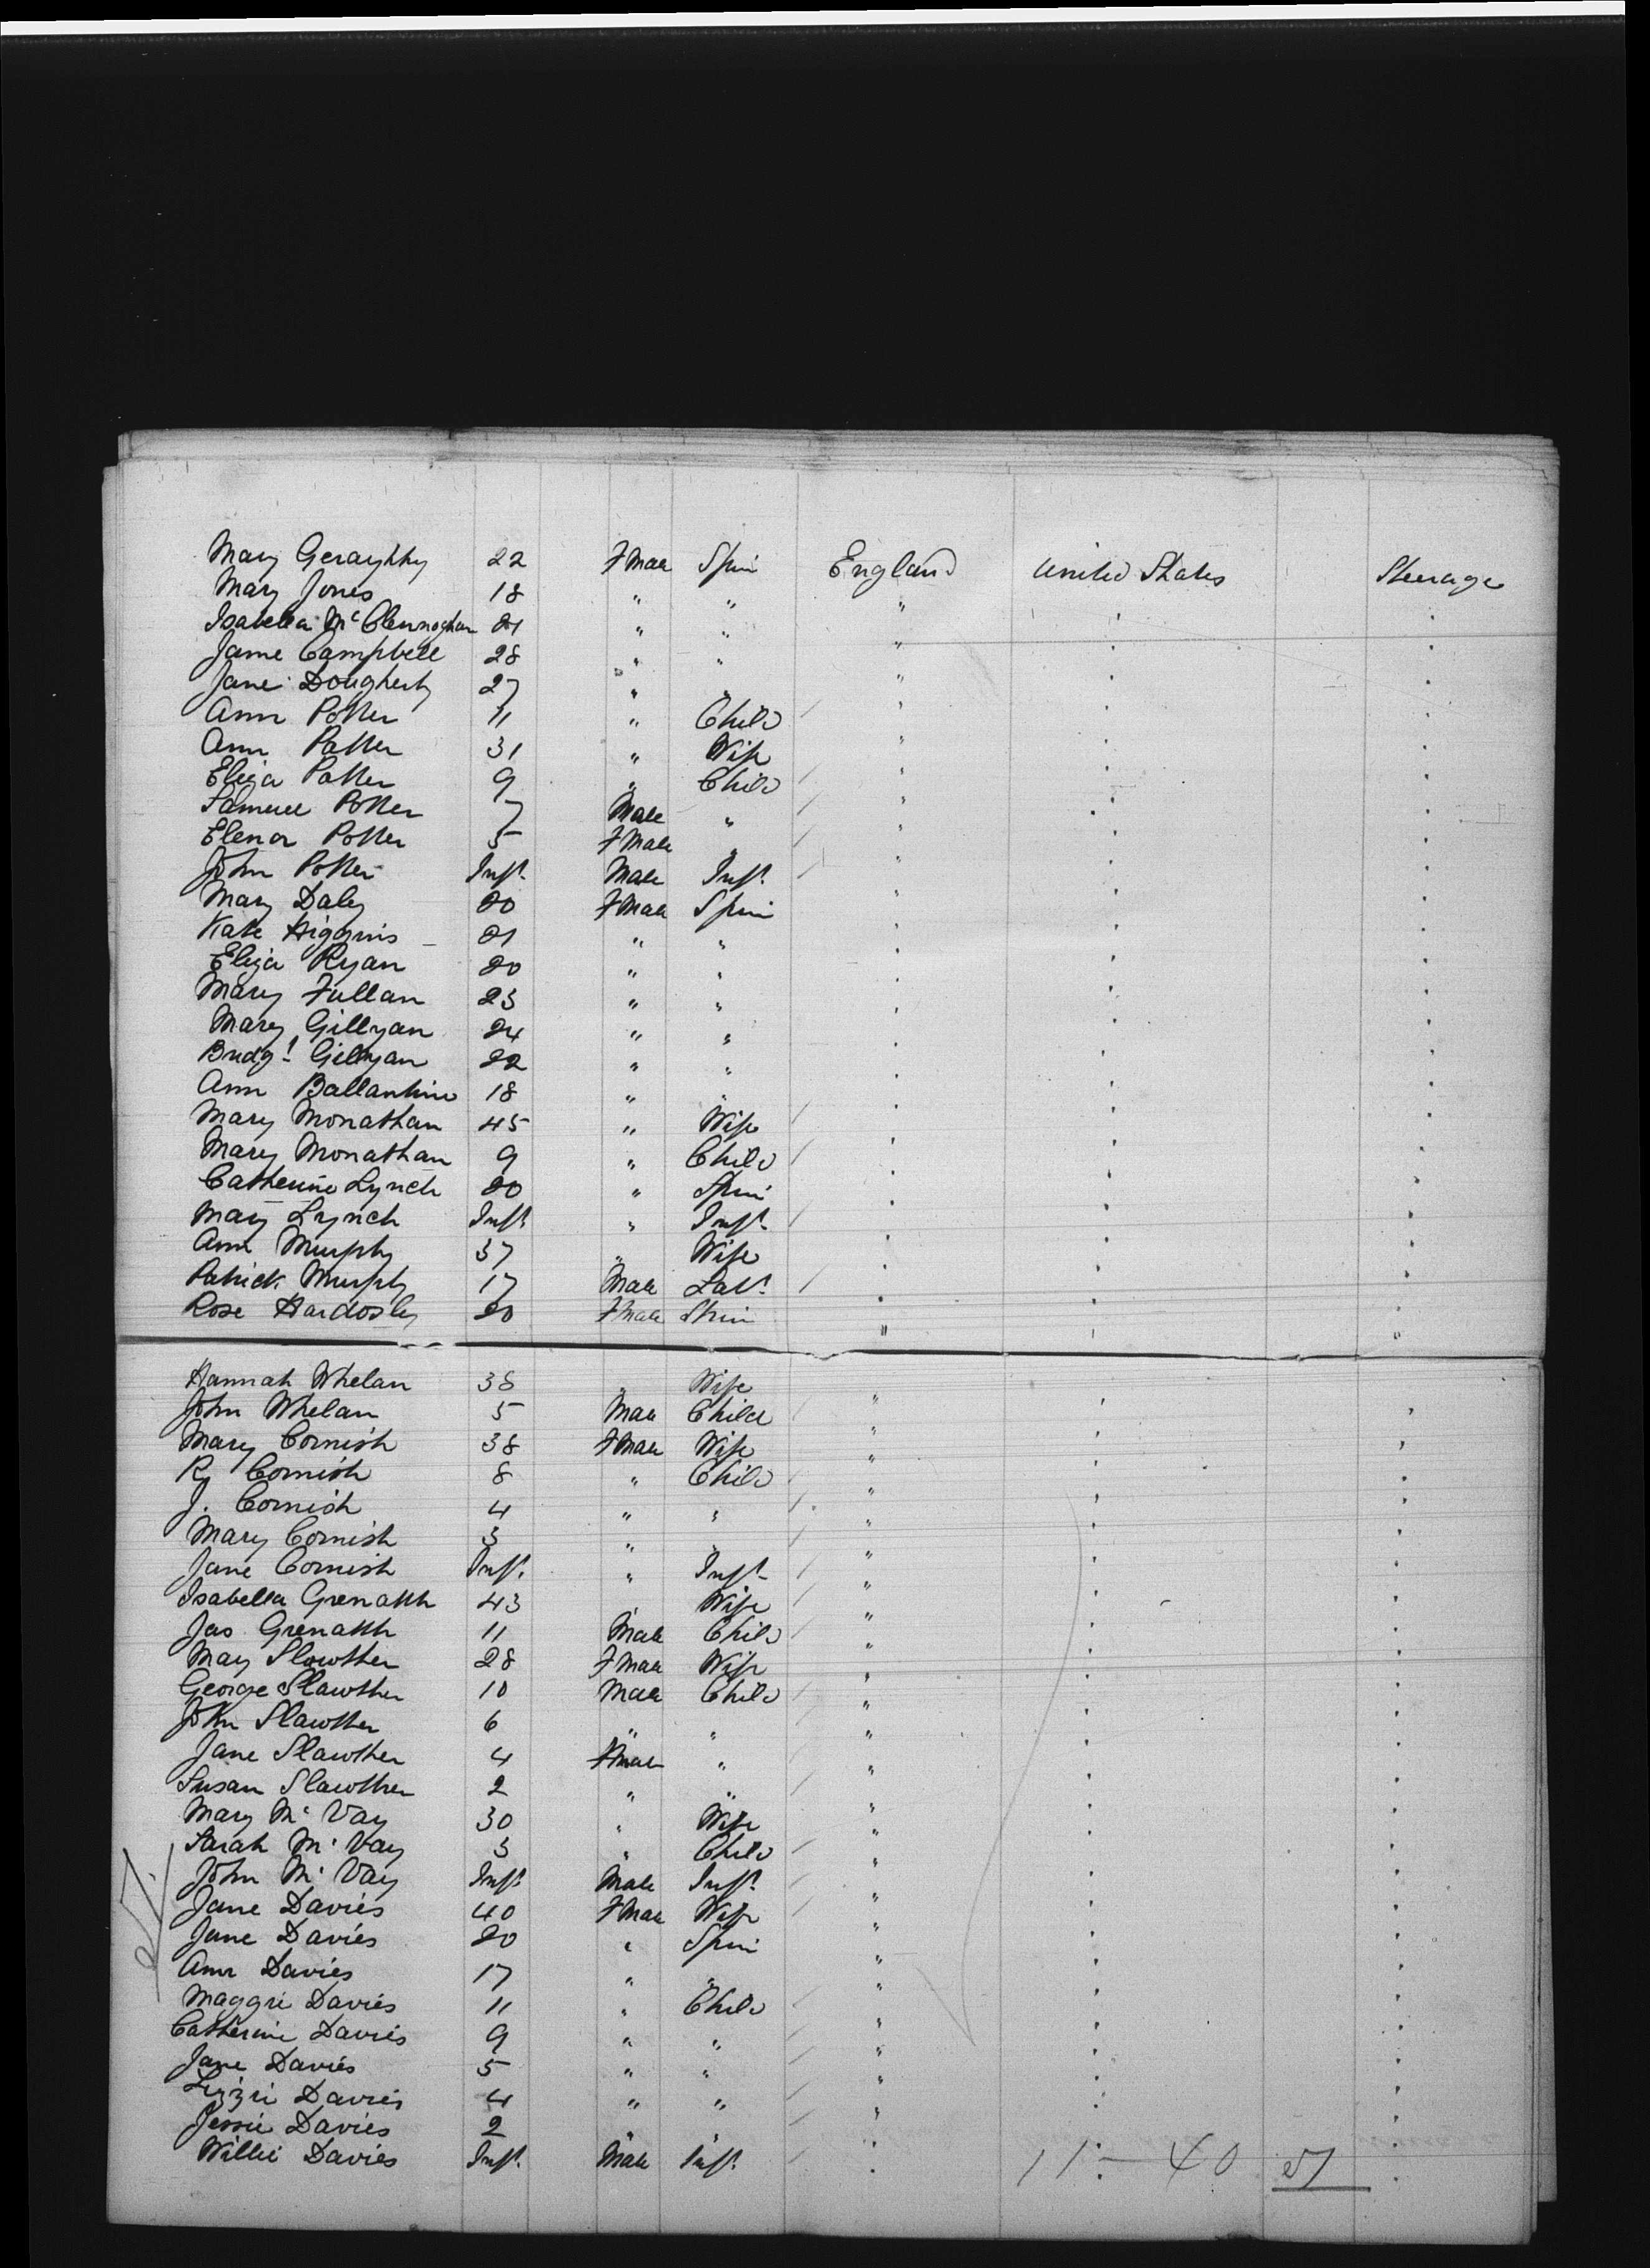 Mary Geraghty 22 FMale Spin England United States Steerage
Mary Jones 18 " " " " "
Isabella McClennoghan 21 " " " " "
Jame Campbell 28 " " " " "
Jane Dougherty 27 " " " " "
Ann Potter 11 " Child " " "
Ann Potter 31 " Wife " " "
Eliza Potter 9 " Child " " "
Samuel Potter 7 Male " " " "
Elenor Potter 5 FMale " " " "
John Potter Inft. Male Inft. " " "
Mary Daley 20 FMale Spin " " "
Kate Higgins 21 " " " " "
Eliza Ryan 20 " " " " "
Mary Fullan 23 " " " " "
Mary Gillyan 24 " " " " "
Bridgt Gillyan 22 " " " " "
Ann Ballantine 18 " " " " "
Mary Monathan 45 " Wife " " "
Mary Monathan 9 " Child " " "
Catherine Lynch 20 " Spin " " "
Mary Lynch Inft " Inft. " " "
Ann Murphy 37 " Wife " " "
Patrick Murphy 17 Male Labr " " "
Rose Hardosley 20 FMale Spin " " "
Hannah Whelan 38 " Wife " " "
John Whelan 5 Male Child " " "
Mary Cornish 38 FMale Wife " " "
Cornish 8 " Child " " "
J. Cornish 4 " " " " "
Mary Cornish 3 " " " " "
Jane Cornish Inft. " Inft. " " "
Isabella Grenatth 43 " Wife " " "
Jas Grenatth 11 Male Child " " "
Mary Slowther 28 FMale Wife " " "
George Slawther 10 Male Child " " "
John Slawther 6 " " " " "
Jane Slawther 4 FMale " " " "
Susan Slawther 2 " " " " "
Mary McVay 30 " Wife " " "
Sarah McVay 3 " Child " " "
John McVay Inft Male Inft. " " "
Jane Davies 40 FMale Wife " " "
Jane Davies 20 " Spin " " "
Ann Davies 17 " " " " "
Maggie Davies 11 " Child " " "
Catherine Davies 9 " " " " "
Jane Davies 5 " " " " "
Lizzie Davies 4 " " " " "
Jessie Davies 2 " " " " "
Willie Davies Inft. Male Inft. " " "
11 - 40 51